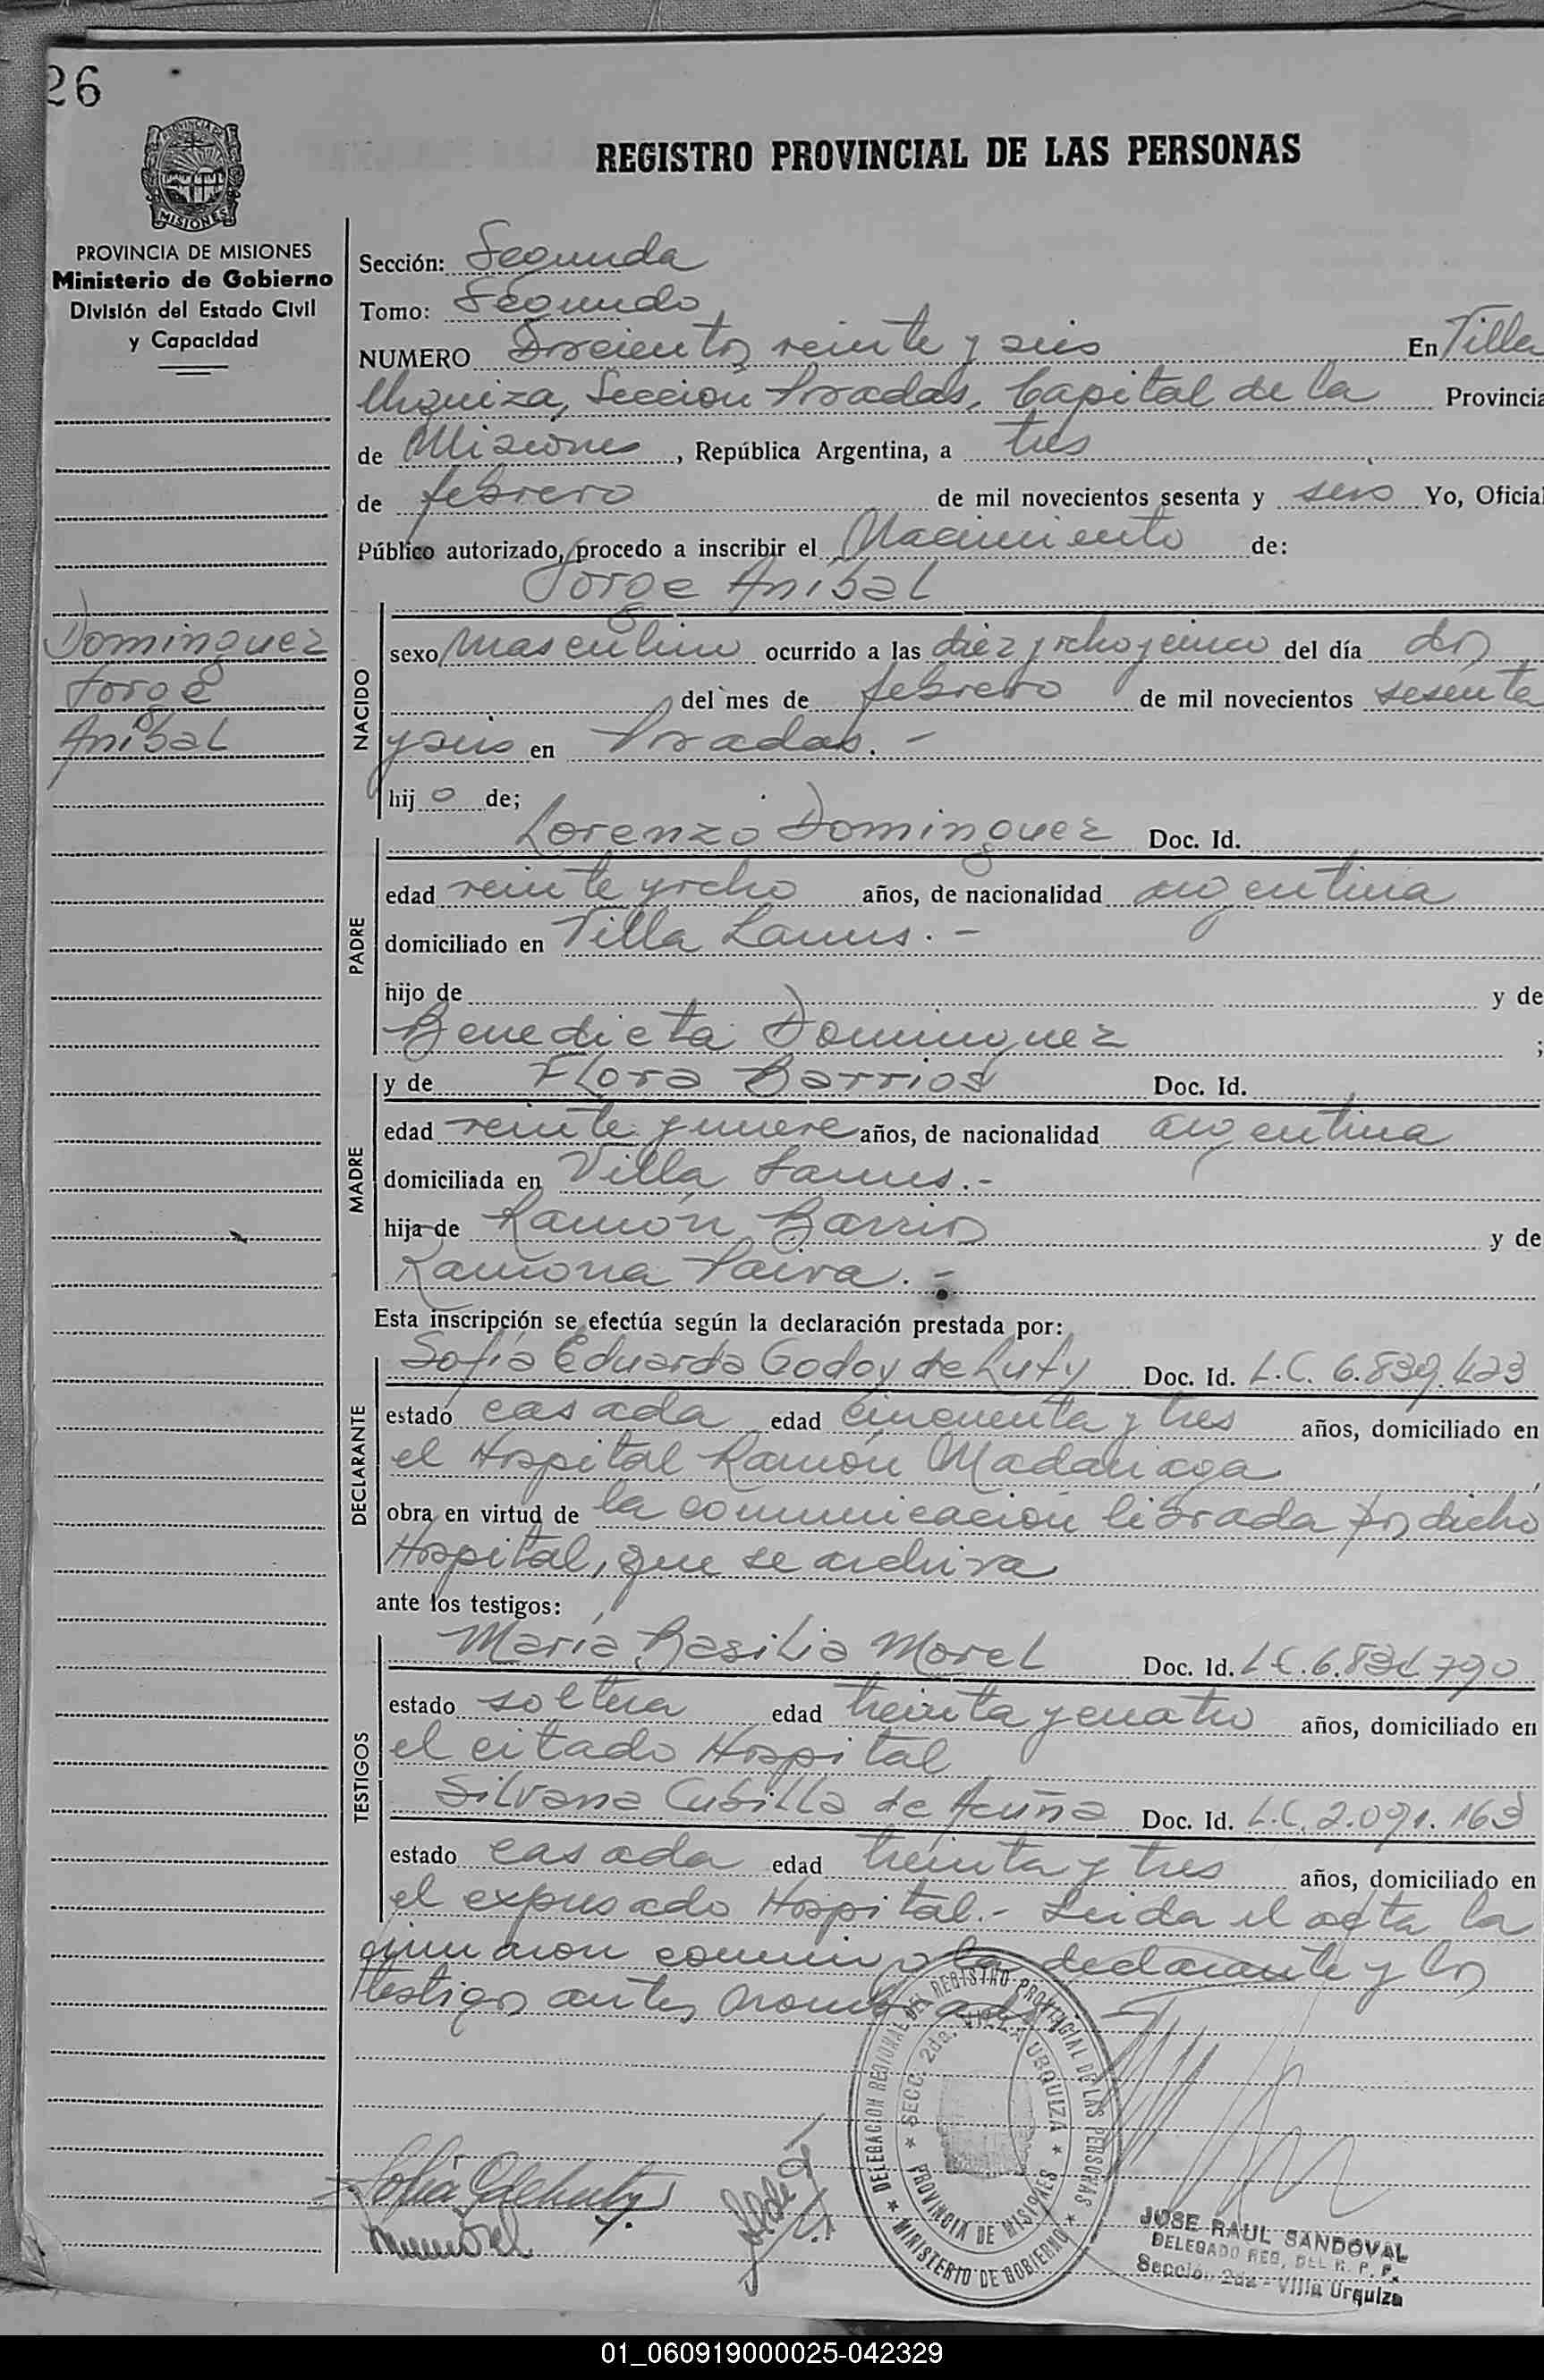 26
REGISTRO PROVINCIAL DE LAS PERSONAS
PROVINCIA DE MISIONES
MISIONES
PROVINCIA DE MISIONES
Ministerio de Gobierno
División del Estado Civil
y Capacidad
Sección: Segunda
Tomo: Segundo
NUMERO Doscientos veinte y seis En Villa
Urquiza, Sección Posadas, Capital de la Provincia
de Misiones, República Argentina, a tres
de febrero de mil novecientos sesenta y seis Yo, Oficial
Público autorizado, procedo a inscribir el Nacimiento de:
Jorge Anibal
Dominguez
Jorge
Anibal
NACIDO
sexo Masculino ocurrido a las diez y ocho y cinco del día dos
del mes de febrero de mil novecientos sesenta
y seis en Posadas. -
hij o de;
PADRE
Lorenzo Dominguez Doc. Id.
edad veinte y ocho años, de nacionalidad argentina
domiciliado en Villa Lanus. -
hijo de y de
Benedicta Dominguez ;
MADRE
y de Flora Barrios Doc. Id.
edad veinte y nueve años, de nacionalidad argentina
domiciliada en Villa Lanus. -
hija de Ramón Barrios y de
Ramona Paiva. -
Esta inscripción se efectúa según la declaración prestada por:
DECLARANTE
Sofia Eduarda Godoy de Lufy Doc. Id. L.C. 6.839.423
estado casada edad cincuenta y tres años, domiciliado en
el Hospital Ramón Madariaga ,
obra en virtud de la comunicación librada por dicho
Hospital, que se archiva
ante los testigos:
TESTIGOS
María Basilia Morel Doc. Id. L.C. 6.
estado soltera edad treinta y cuatro años, domiciliado en
el citado Hospital
Silvana Cubilla de Acuña Doc. Id. L.C. 2.091.163
estado casada edad treinta y tres años, domiciliado en
el expresado Hospital. - Leida el acta la
firmaron conmigo la declarante y los
testigos antes nombrados
DELEGACION REGIONAL DEL REGISTRO PROVINCIAL DE LAS PERSONAS
SECC. 2da. VILLA URQUIZA
PROVINCIA DE MISIONES
MINISTERIO DE GOBIERNO
JOSE RAUL SANDOVAL
DELEGADO REG. DEL R. P. P.
Sección 2da - Villa Urquiza
01_060919000025-042329